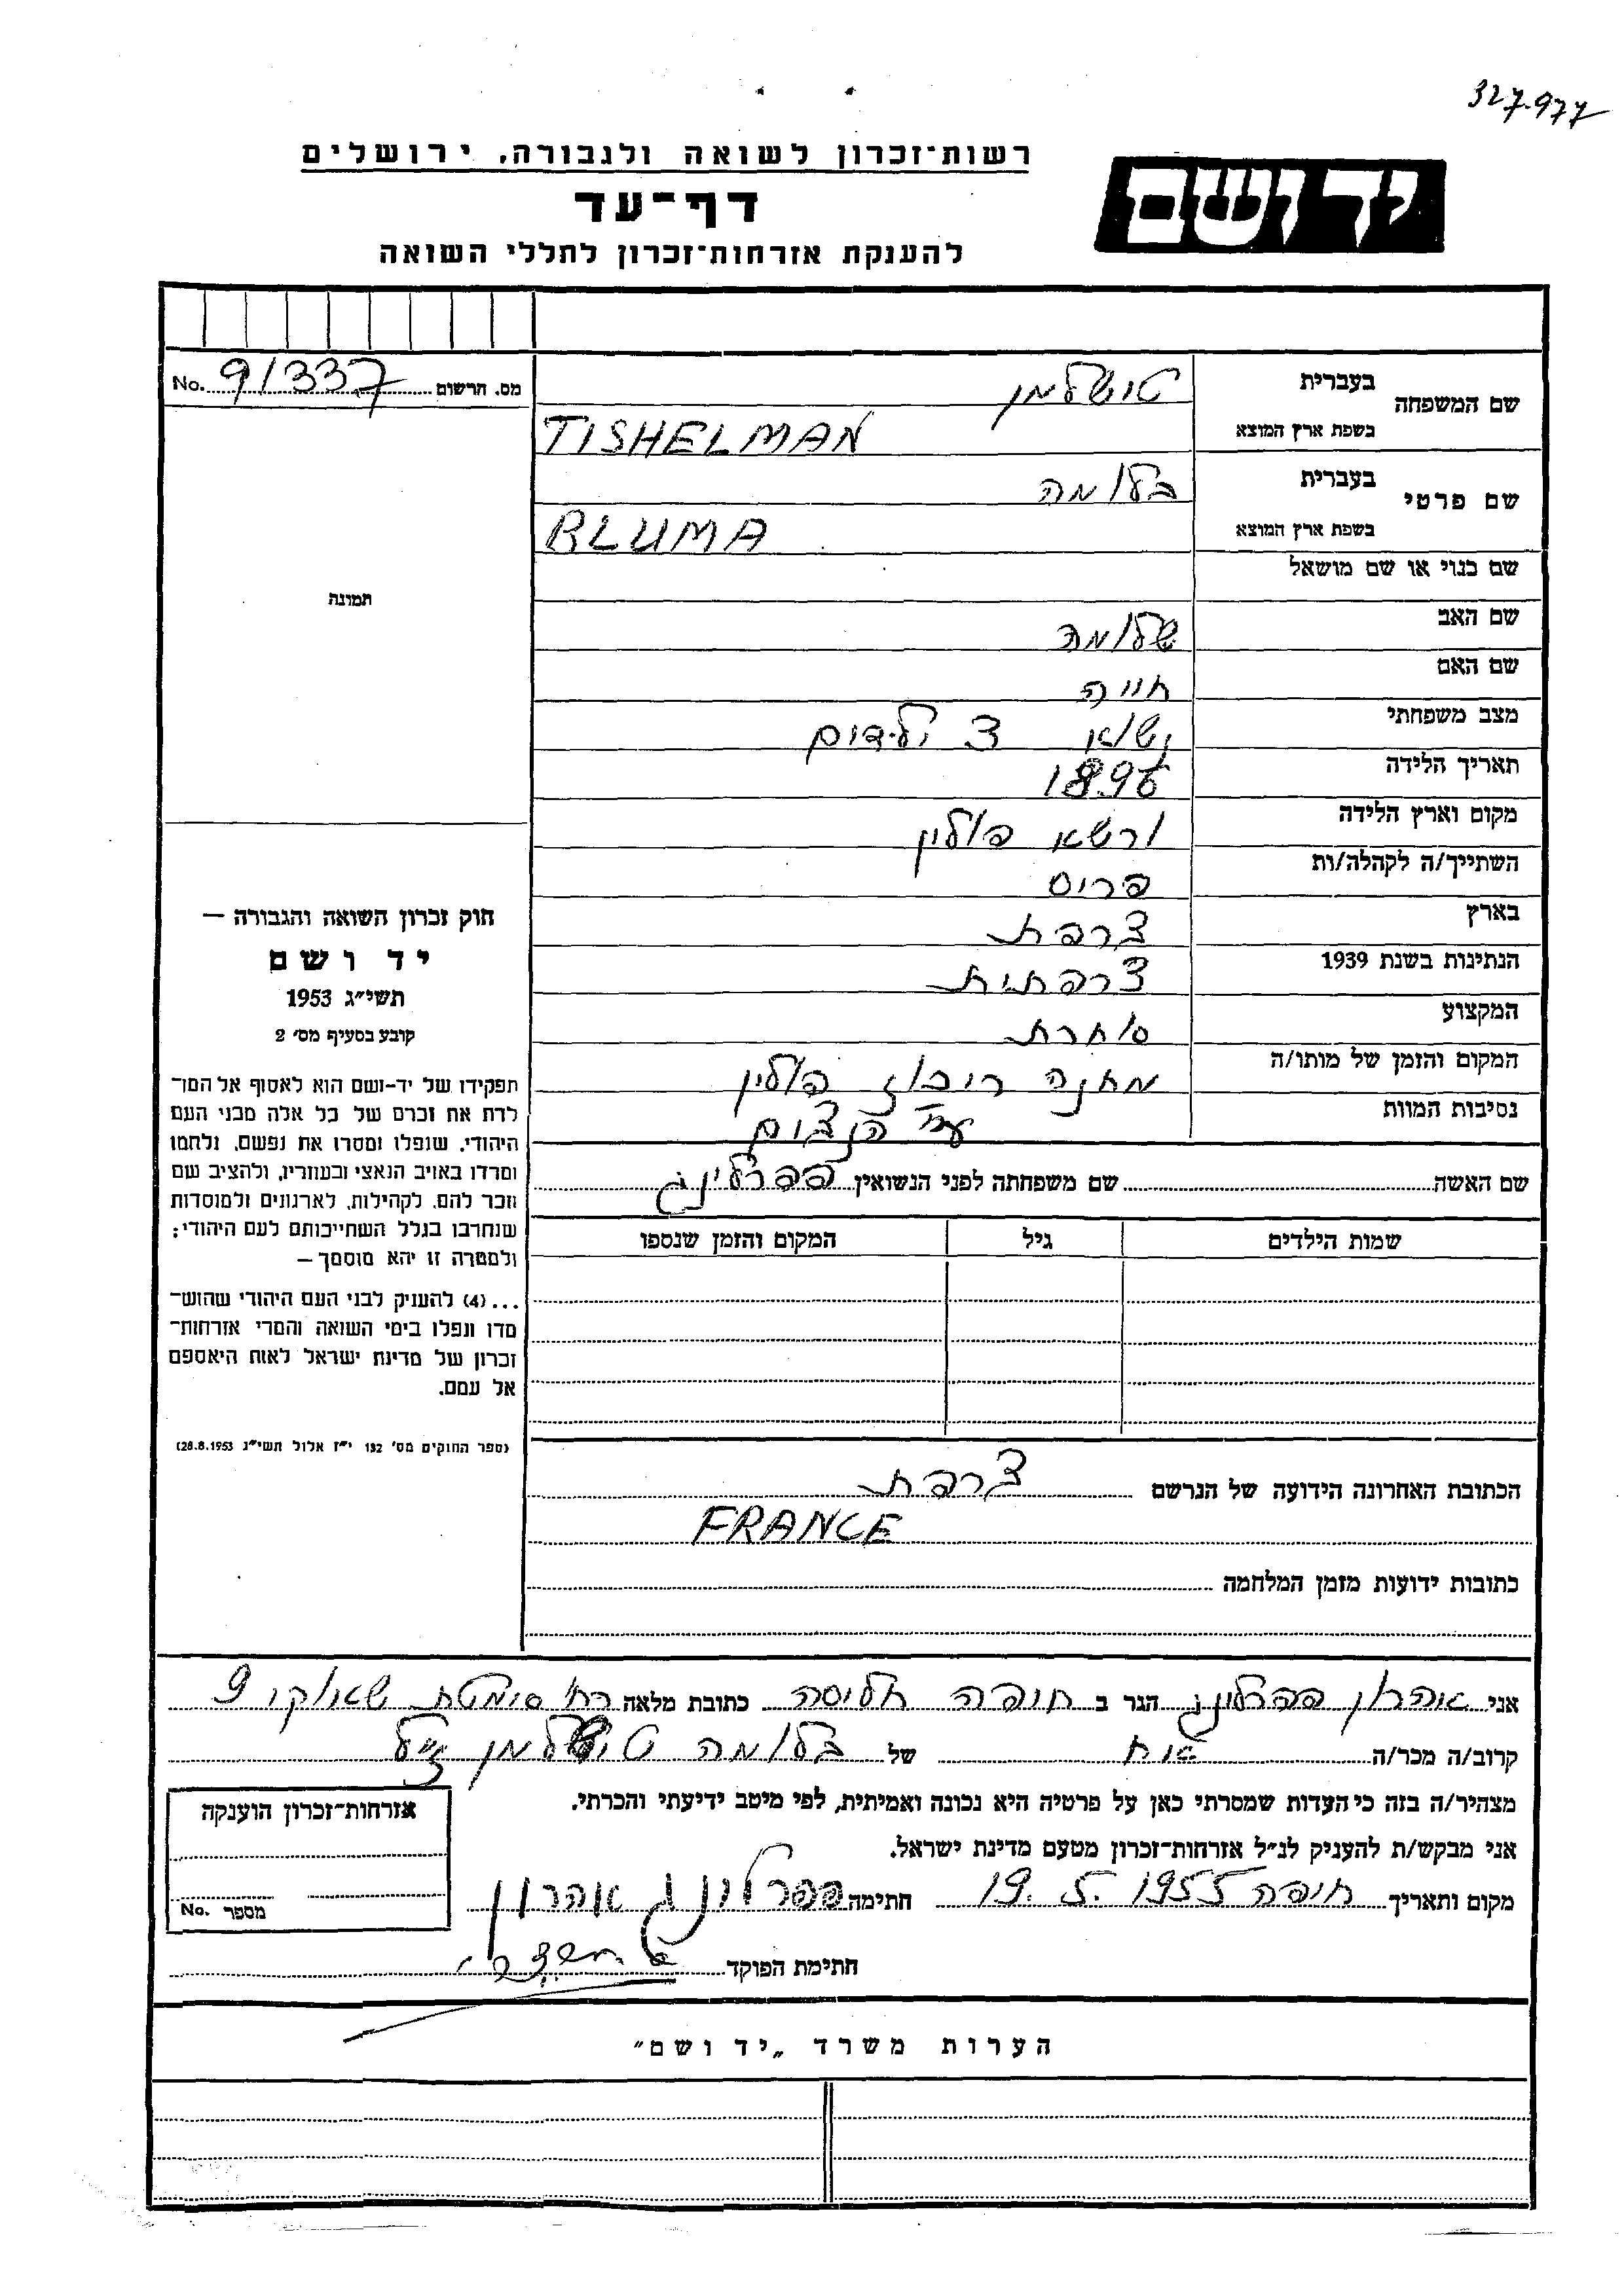 327.977
רשות־זכרון לשואה ולגבורה, ירושלים
יד ושם
דף־עד
להענקת אזרחות־זכרון לחללי השואה
No. 91337 מס. הרשום
שם המשפחה בעברית טושלמן
בשפת ארץ המוצא TISHELMAN
שם פרטי בעברית בלומה
בשפת ארץ המוצא BLUMA
שם כנוי או שם מושאל
תמונה
שם האב שלומה
שם האם חייה
מצב משפחתי נשוא 3 ילידים
תאריך הלידה 1896
מקום וארץ הלידה ורשא פולין
השתייך/ה לקהלה/ות פריס
בארץ צרפת
הנתינות בשנת 1939 צרפתית
המקצוע סוחרת
המקום והזמן של מותו/ה מחנה ריכוז פולין
נסיבות המוות ע״י הנצים
שם האשה שם משפחתה לפני הנשואין פפרלינג
שמות הילדים גיל המקום והזמן שנספו
חוק זכרון השואה והגבורה —
יד ושם
תשי״ג 1953
קובע בסעיף מס׳ 2
תפקידו של יד-ושם הוא לאסוף אל המו־
לדת את זכרם של כל אלה מבני העם
היהודי, שנפלו ומסרו את נפשם, נלחמו
ומרדו באויב הנאצי ובעוזריו, ולהציב שם
וזכר להם, לקהילות, לארגונים ולמוסדות
שנחרבו בגלל השתייכותם לעם היהודי;
ולמטרה זו יהא מוסמך —
...(4) להעניק לבני העם היהודי שהוש־
מדו ונפלו בימי השואה והמרי אזרחות־
זכרון של מדינת ישראל לאות היאספם
אל עמם.
(ספר החוקים מס׳ 132 י״ז אלול תשי״ג 28.8.1953)
הכתובת האחרונה הידועה של הנרשם צרפת
FRANCE
כתובות ידועות מזמן המלחמה
אני אהרון פפרלינג הגר ב חיפה חליסה כתובת מלאה רח׳ סימטת 9
קרוב/ה מכר/ה אח של בלומה טישלמן ז״ל
מצהיר/ה בזה כי העדות שמסרתי כאן על פרטיה היא נכונה ואמיתית, לפי מיטב ידיעתי והכרתי.
אני מבקש/ת להעניק לנ״ל אזרחות־זכרון מטעם מדינת ישראל.
מקום ותאריך חיפה 19.5.1955 חתימה פפרלינג אהרון
אזרחות־זכרון הוענקה
No. מספר
חתימת הפוקד
הערות משרד „יד ושם״